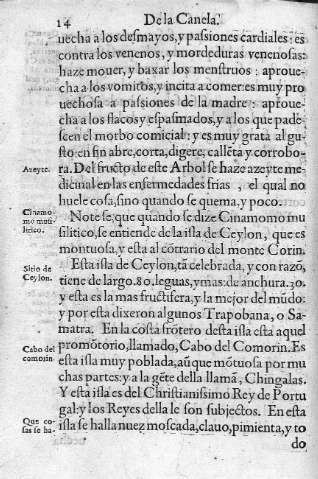 14 De la Canela.
uecha a los desmayos, y passiones cardiales: es
contra los venenos, y mordeduras venenosas:
haze mouer, y baxar los menstruos: aproue-
cha a los vomitos, y incita a comer: es muy pro
uechosa a passiones de la madre: aproue-
cha a los flacos y espasmados, y a los que pade-
scen el morbo comicial: y es muy grata al gu-
sto en fin abre, corta, digere, callẽta y corrobo-
Azeyte.
ra. Del fructo de este Arbol se haze azeyte me-
dicinal en las enfermedades frias, el qual no
huele cosa, sino quando se quema, y poco.
Cinamo-
mo musi-
litico.
Note se, que quando se dize Cinamomo mu-
silitico, se entiende de la isla de Ceylon, que es
montuosa, y esta al cõtrario del monte Corin.
Sitio de
Ceylon.
Esta isla de Ceylon, tã celebrada, y con razõ,
tiene de largo .80. leguas, y mas: de anchura .30.
y esta es la mas fructifera, y la mejor del mũdo:
y por esta dixeron algunos Trapobana, o Sa-
matra. En la costa frõtero desta isla esta aquel
Cabo del
comorin.
promõtorio, llamado, Cabo del Comorin. Es
esta isla muy poblada, aũ que mõtuosa por mu
chas partes: y a la gẽte della llamã, Chingalas.
Y esta isla es del Christianissimo Rey de Portu
gal: y los Reyes della le son subjectos. En esta
Que co-
sas se ha-
isla se halla nuez moscada, clauo, pimienta, y to
do